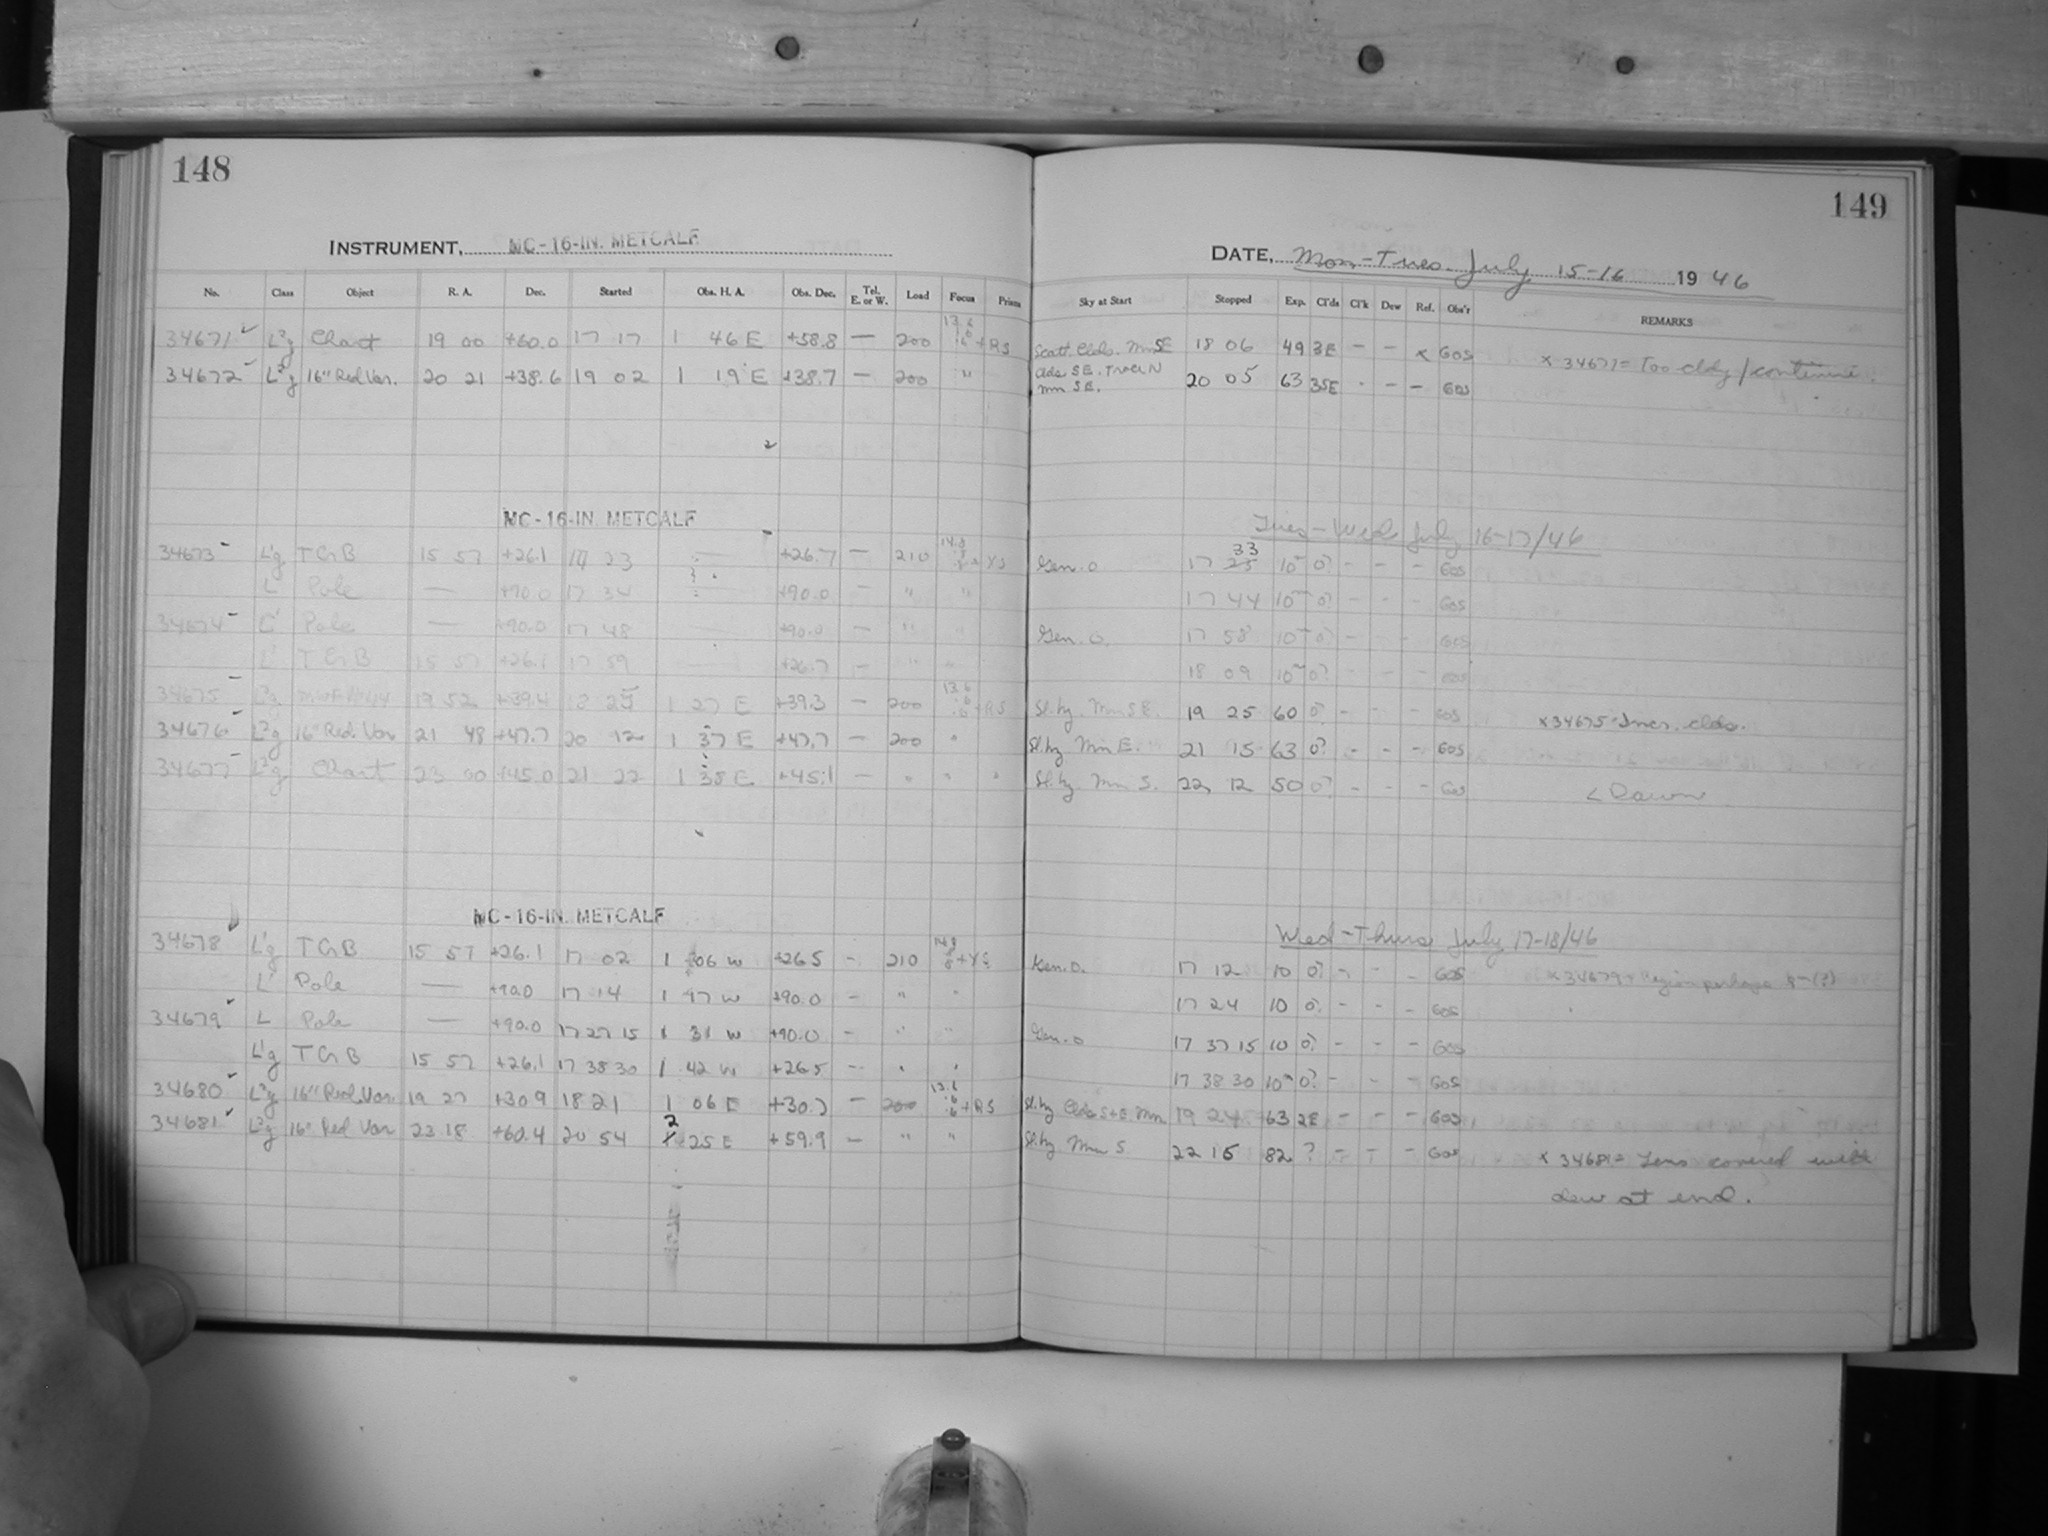 148
149
INSTRUMENT, MC-16-IN. METCALF
DATE, Mon-Tues. July 15-16 1946
No. Class Object R. A. Dec. Started Obs. H. A. Obs. Dec. Tel. E. or W. Load Focus Prism Sky at Start Stopped Exp. Cl'ds Cl'k Dew Ref. Obs'r REMARKS
34671 Chart 19 00 +60.0 17 17 1 46 E +58.8 — 200 + RS Scatt. Clds. Mn SE 18 06 49 3E - - x GOS
34672 16" Red Var. 20 21 +38.6 19 02 1 19 E +38.7 — 200 " SE. Mn SE. 20 05 63 3SE - - GOS
MC-16-IN. METCALF
Tues-Wed July 16-17/46
34673 L'g TCrB 15 57 +26.1 17 23 +26.7 — 210 + YS Gen. 0 17 33 10 0? - - - GOS
L' Pole — +90.0 17 34 +90.0 — " " 17 44 10 0? - - - GOS
34674 L' Pole — +90.0 17 48 +90.0 — " " Gen. 0. 17 58 10 0? - - - GOS
L' TCrB 15 57 +26.1 17 59 +26.7 — " " 18 09 10 0? - - - GOS
34675 19 52 +39.4 18 25 1 27 E +39.3 — 200 + RS Sl. hzy Mn SE. 19 25 60 0? - - - GOS x 34675 Incr. clds.
34676 16" Red. Var 21 48 +47.7 20 12 1 37 E +47.7 — 200 " Sl. hzy Mn E. 21 15 63 0? - - - GOS
34677 Chart 23 00 +45.0 21 22 1 38 E +45.1 — " " " Sl. hzy Mn S. 22 12 50 0? - - - GOS < Dawn
MC-16-IN. METCALF
Wed-Thurs July 17-18/46
34678 L'g TCrB 15 57 +26.1 17 02 1 06 W +26.5 - 210 + YS Gen. 0. 17 12 10 0? - - - GOS x 34679 = Region perhaps
L' Pole — +90.0 17 14 1 17 W +90.0 - " " 17 24 10 0? - - - GOS
34679 L Pole — +90.0 17 27 15 1 31 W +90.0 - " " Gen. 0 17 37 15 10 0? - - - GOS
L'g TCrB 15 57 +26.1 17 38 30 1 42 W +26.5 - " " 17 38 30 10 0? - - - GOS
34680 16" Red. Var. 19 27 +30.9 18 21 1 06 E +30.7 — 200 + RS Sl. hzy Clds S+E. Mn 19 24 63 2E - - - GOS
34681 16" Red Var 23 18 +60.4 20 54 2 25 E +59.9 — " " Sl. hzy Mn S 22 15 82 ? - - - GOS x 34681 = Lens covered with
dew at end.